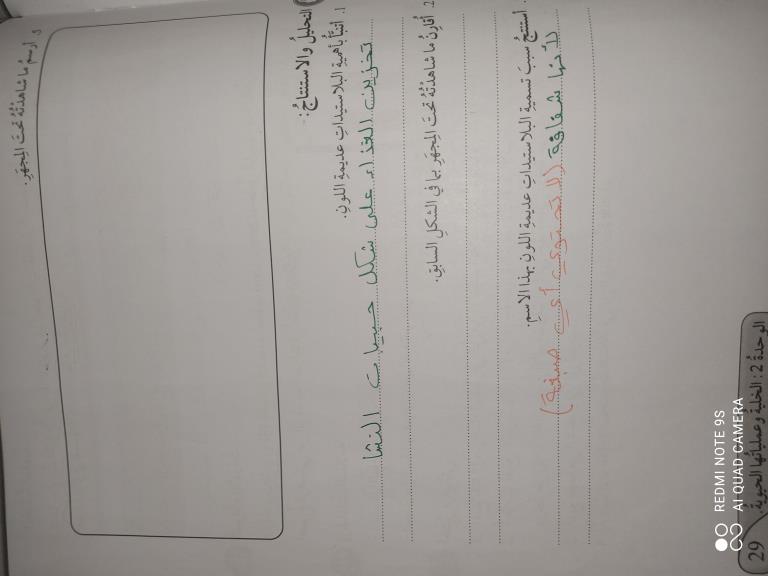 5. أرسمُ ما شاهدْتُهُ تحتَ المِجهَرِ.
التحليلُ والاستنتاجُ:
1. أتنبَّأُ بأهميةِ البلاستيداتِ عديمةِ اللونِ.
تخزين الغذاء على شكل حبيبات النشا
2. أقارنُ ما شاهدْتُهُ تحتَ المِجهَرِ بما في الشكلِ السابقِ.
أستنتجُ سببَ تسميةِ البلاستيداتِ عديمةِ اللونِ بهذا الاسمِ.
لأنها شفافة (لا تحتوي أي صبغة)
الوحدةُ 2: الخليةُ وعملياتُها الحيويةُ.
29
REDMI NOTE 9S
AI QUAD CAMERA